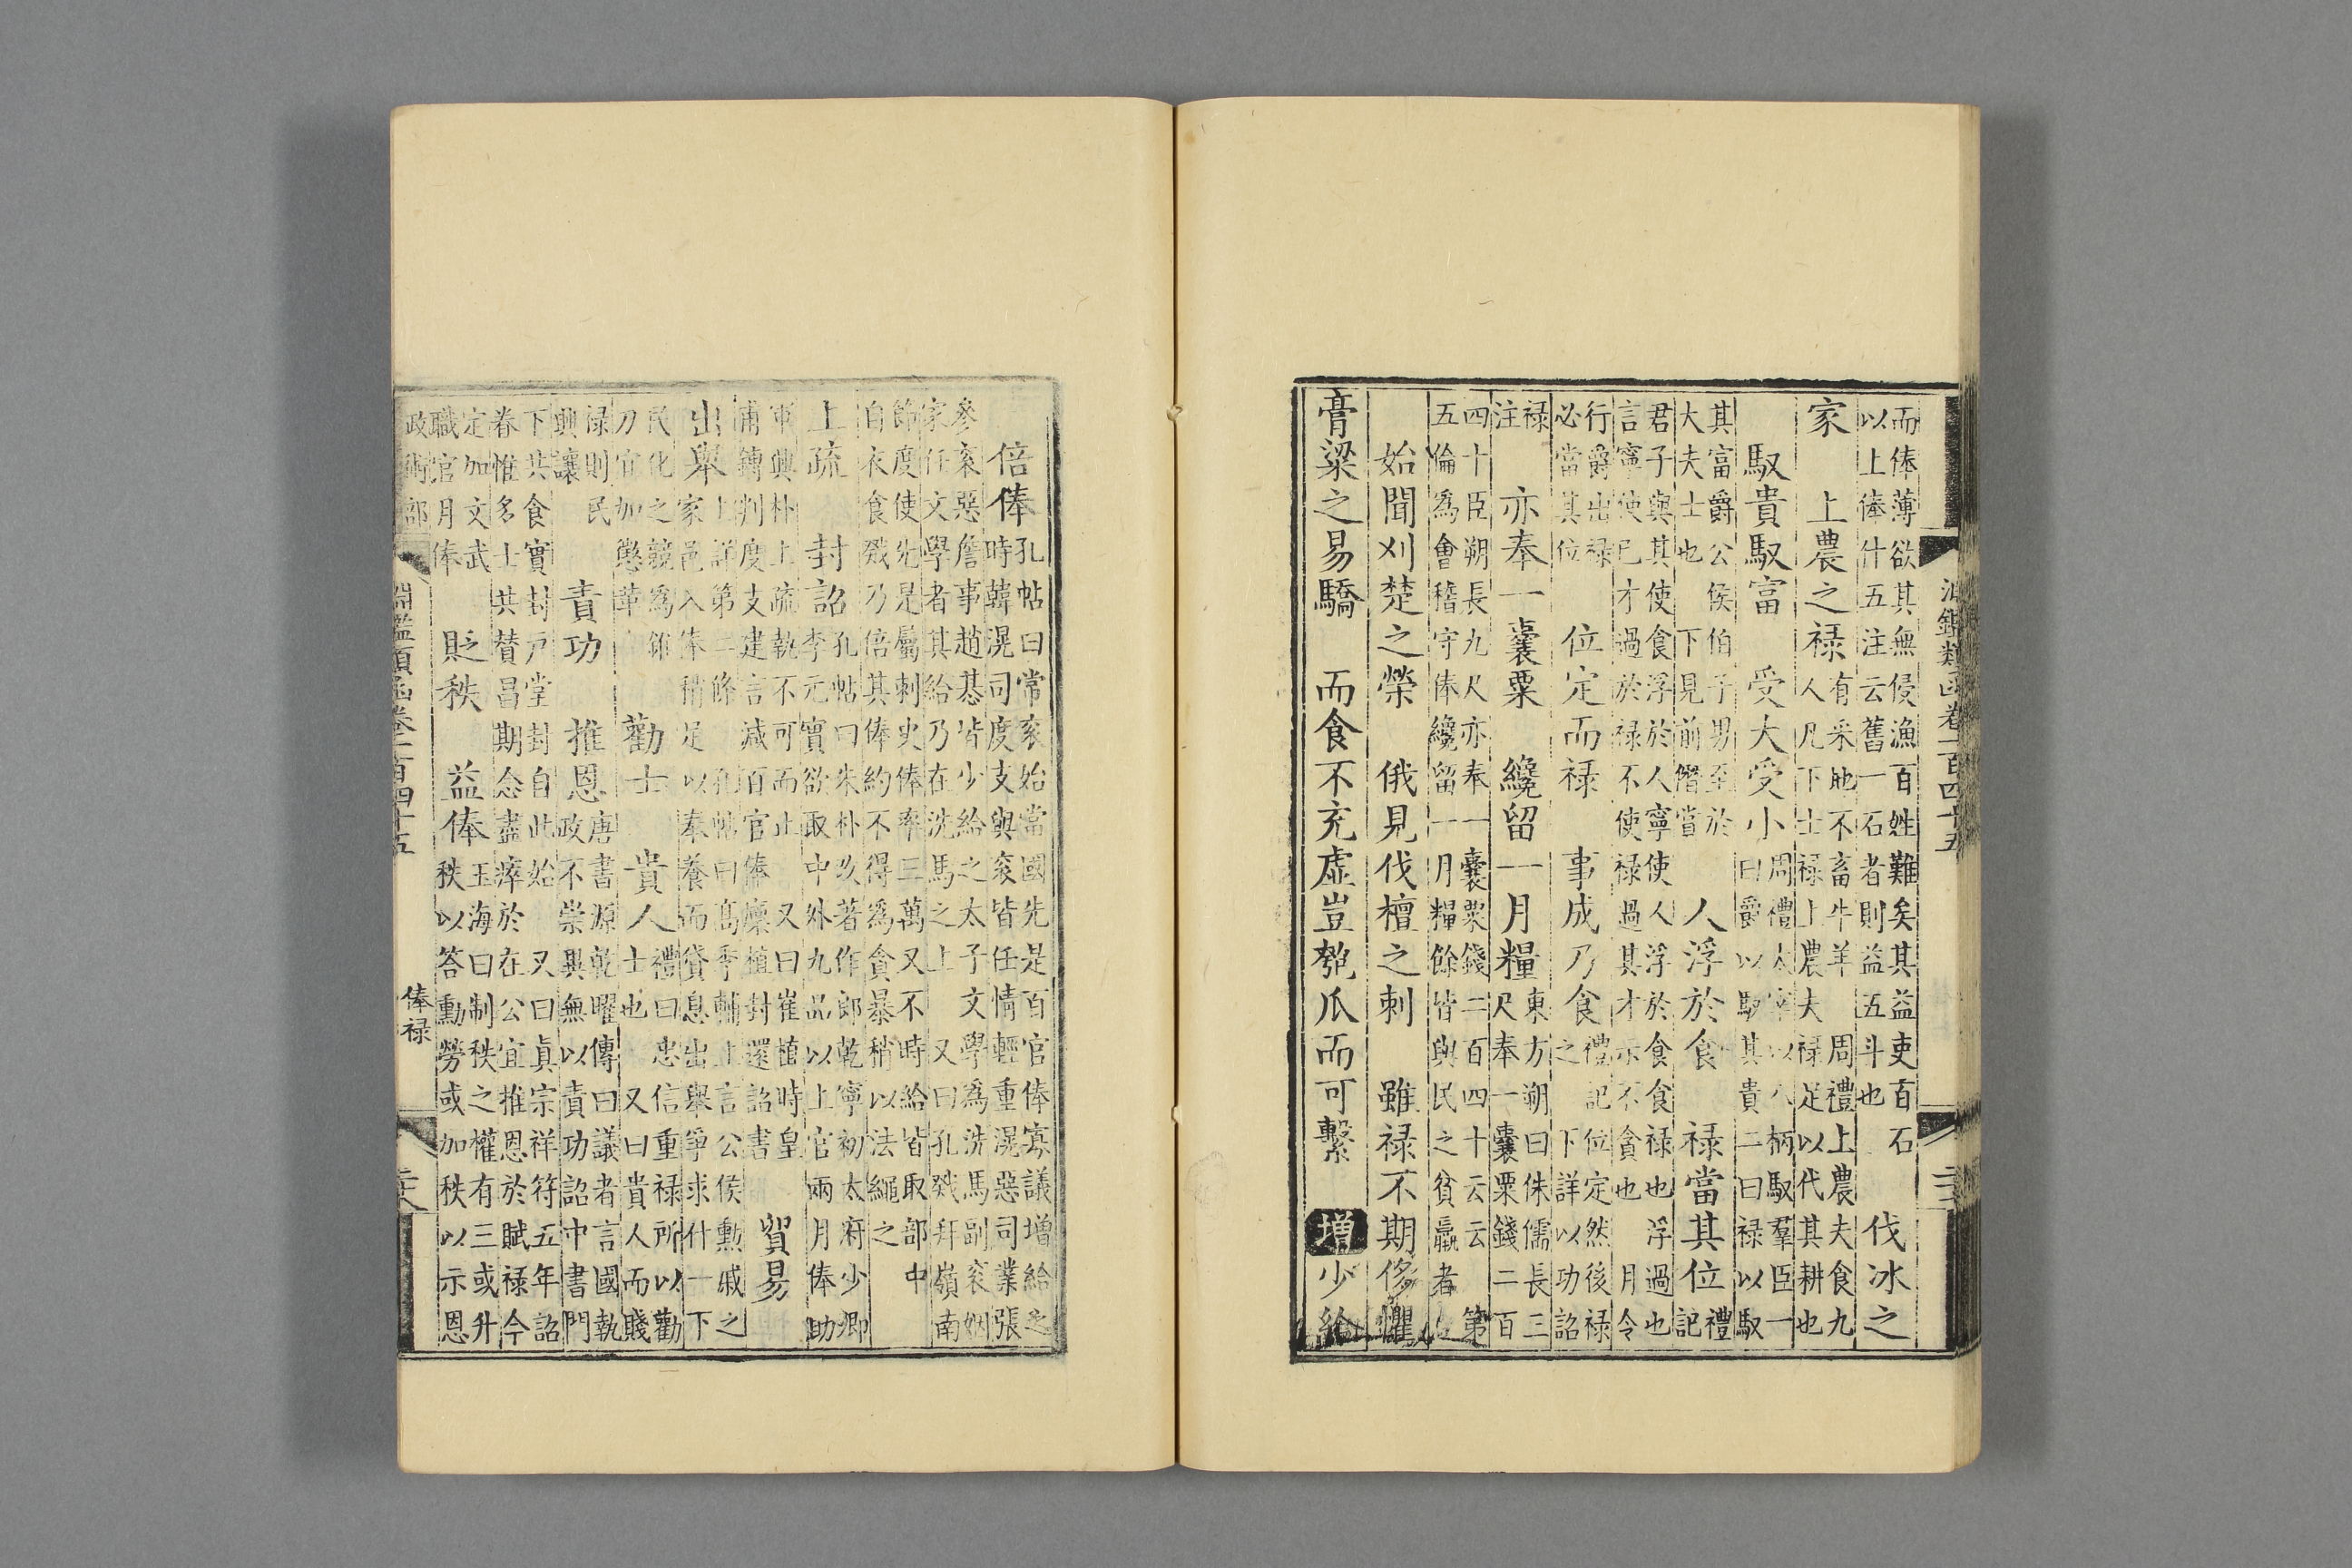 淵鑑類函卷一百四十五
而俸薄欲其無侵漁百姓難矣其益吏百石
以上俸什五注云舊一石者則益五斗也
伐冰之
家
上農之禄
有采地不畜牛羊
周禮上農夫食九
人凡下士禄上農夫禄足以代其耕也
馭貴馭富
受大受小
周禮太宰以八柄馭羣臣一
曰爵以馭其貴二曰禄以馭
其富爵公侯伯子男至於
大夫士也下見前僭當
人浮於食
禄當其位
禮
記
君子與其使食浮於人寧使人浮於食食禄也浮過也
言寧使己才過於禄不使禄過其才示不貪也月令
行爵出禄
必當其位
位定而禄
事成乃食
禮記位定然後禄
之下詳以功詔
禄
注
亦奉一囊粟
纔留一月糧
東方朔曰侏儒長三
尺奉一囊粟錢二百
四十臣朔長九尺亦奉一囊粟錢二百四十云云第
五倫為會稽守俸纔留一月糧餘皆與民之貧羸者
始聞刈楚之榮
俄見伐檀之刺
雖禄不期侈懼
膏粱之易驕
而食不充虛豈匏瓜而可繫
增少給
倍俸
孔帖曰常衮始當國先是百官俸寡議增給之
時韓滉司度支與衮皆任情輕重滉惡司業張
參衮惡詹事趙惎皆少給之太子文學為洗馬副衮姻
家任文學者其給乃在洗馬之上又曰孔戣拜嶺南
節度使先是屬刺史俸率三萬又不時給皆取部中
自衣食戣乃倍其俸約不得為貪暴稍以法繩之
上疏
封詔
孔帖曰朱朴以著作郎乾寧初太府少卿
李元實欲取中外九品以上官兩月俸助
軍興朴上疏執不可而止又曰崔植時皇
甫鏄判度支建言減百官俸廩植封還詔書
貿易
出舉
上詳第二條孔帖曰高季輔上言公侯勳戚之
家邑入俸稍足以奉養而貸息出舉爭求什一下
民化之競為錐
刀宜加懲革
勸士
貴人
禮曰忠信重禄所以勸
士也又曰貴人而賤
禄則民
興讓
責功
推恩
唐書源乾曜傳曰議者言國執
政不崇異無以責功詔中書門
下共食實封户堂封自此始又曰真宗祥符五年詔
春惟多士共贊昌期念盡瘁於在公宜推恩於賦禄今
定加文武
職官月俸
貶秩
益俸
玉海曰制秩之權有三或升
秩以答勳勞或加秩以示恩
政術部
淵鑑類函卷一百四十五
俸禄